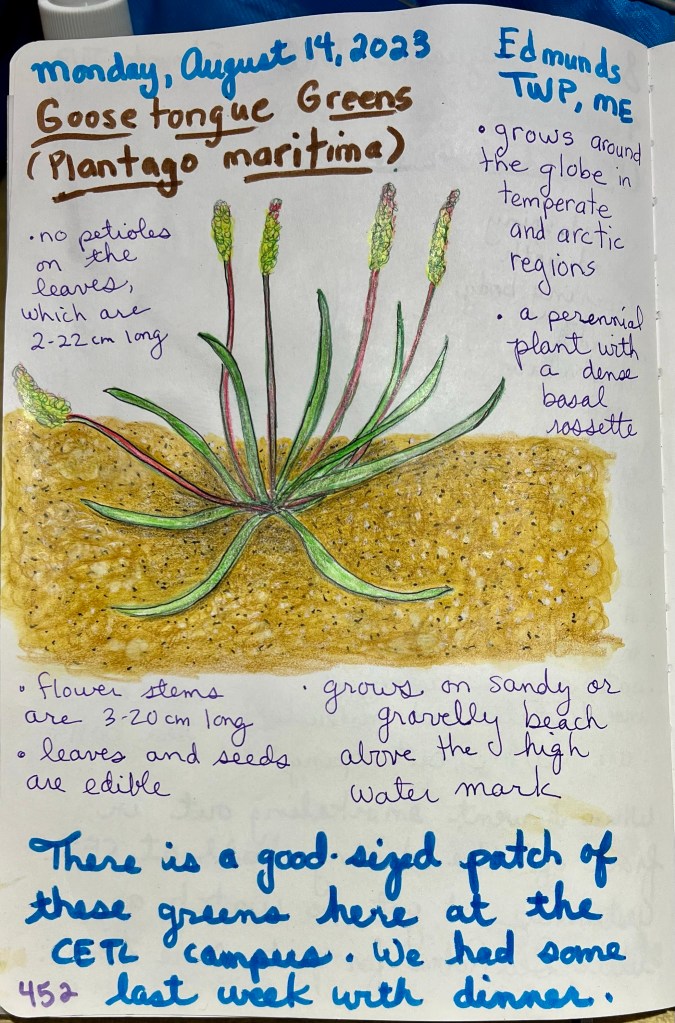 Monday, August 14, 2023
Edmunds
TWP, ME
Goosetongue Greens
(Plantago maritima)
• grows around
the globe in
temperate
and arctic
regions
• no petioles
on the
leaves,
which are
2-22 cm long
• a perennial
plant with
a dense
basal
rossette
• flower stems
are 3-20 cm long
• leaves and seeds
are edible
• grows on sandy or
gravelly beach
above the high
water mark
There is a good-sized patch of
these greens here at the
CETL campus. We had some
last week with dinner.
452